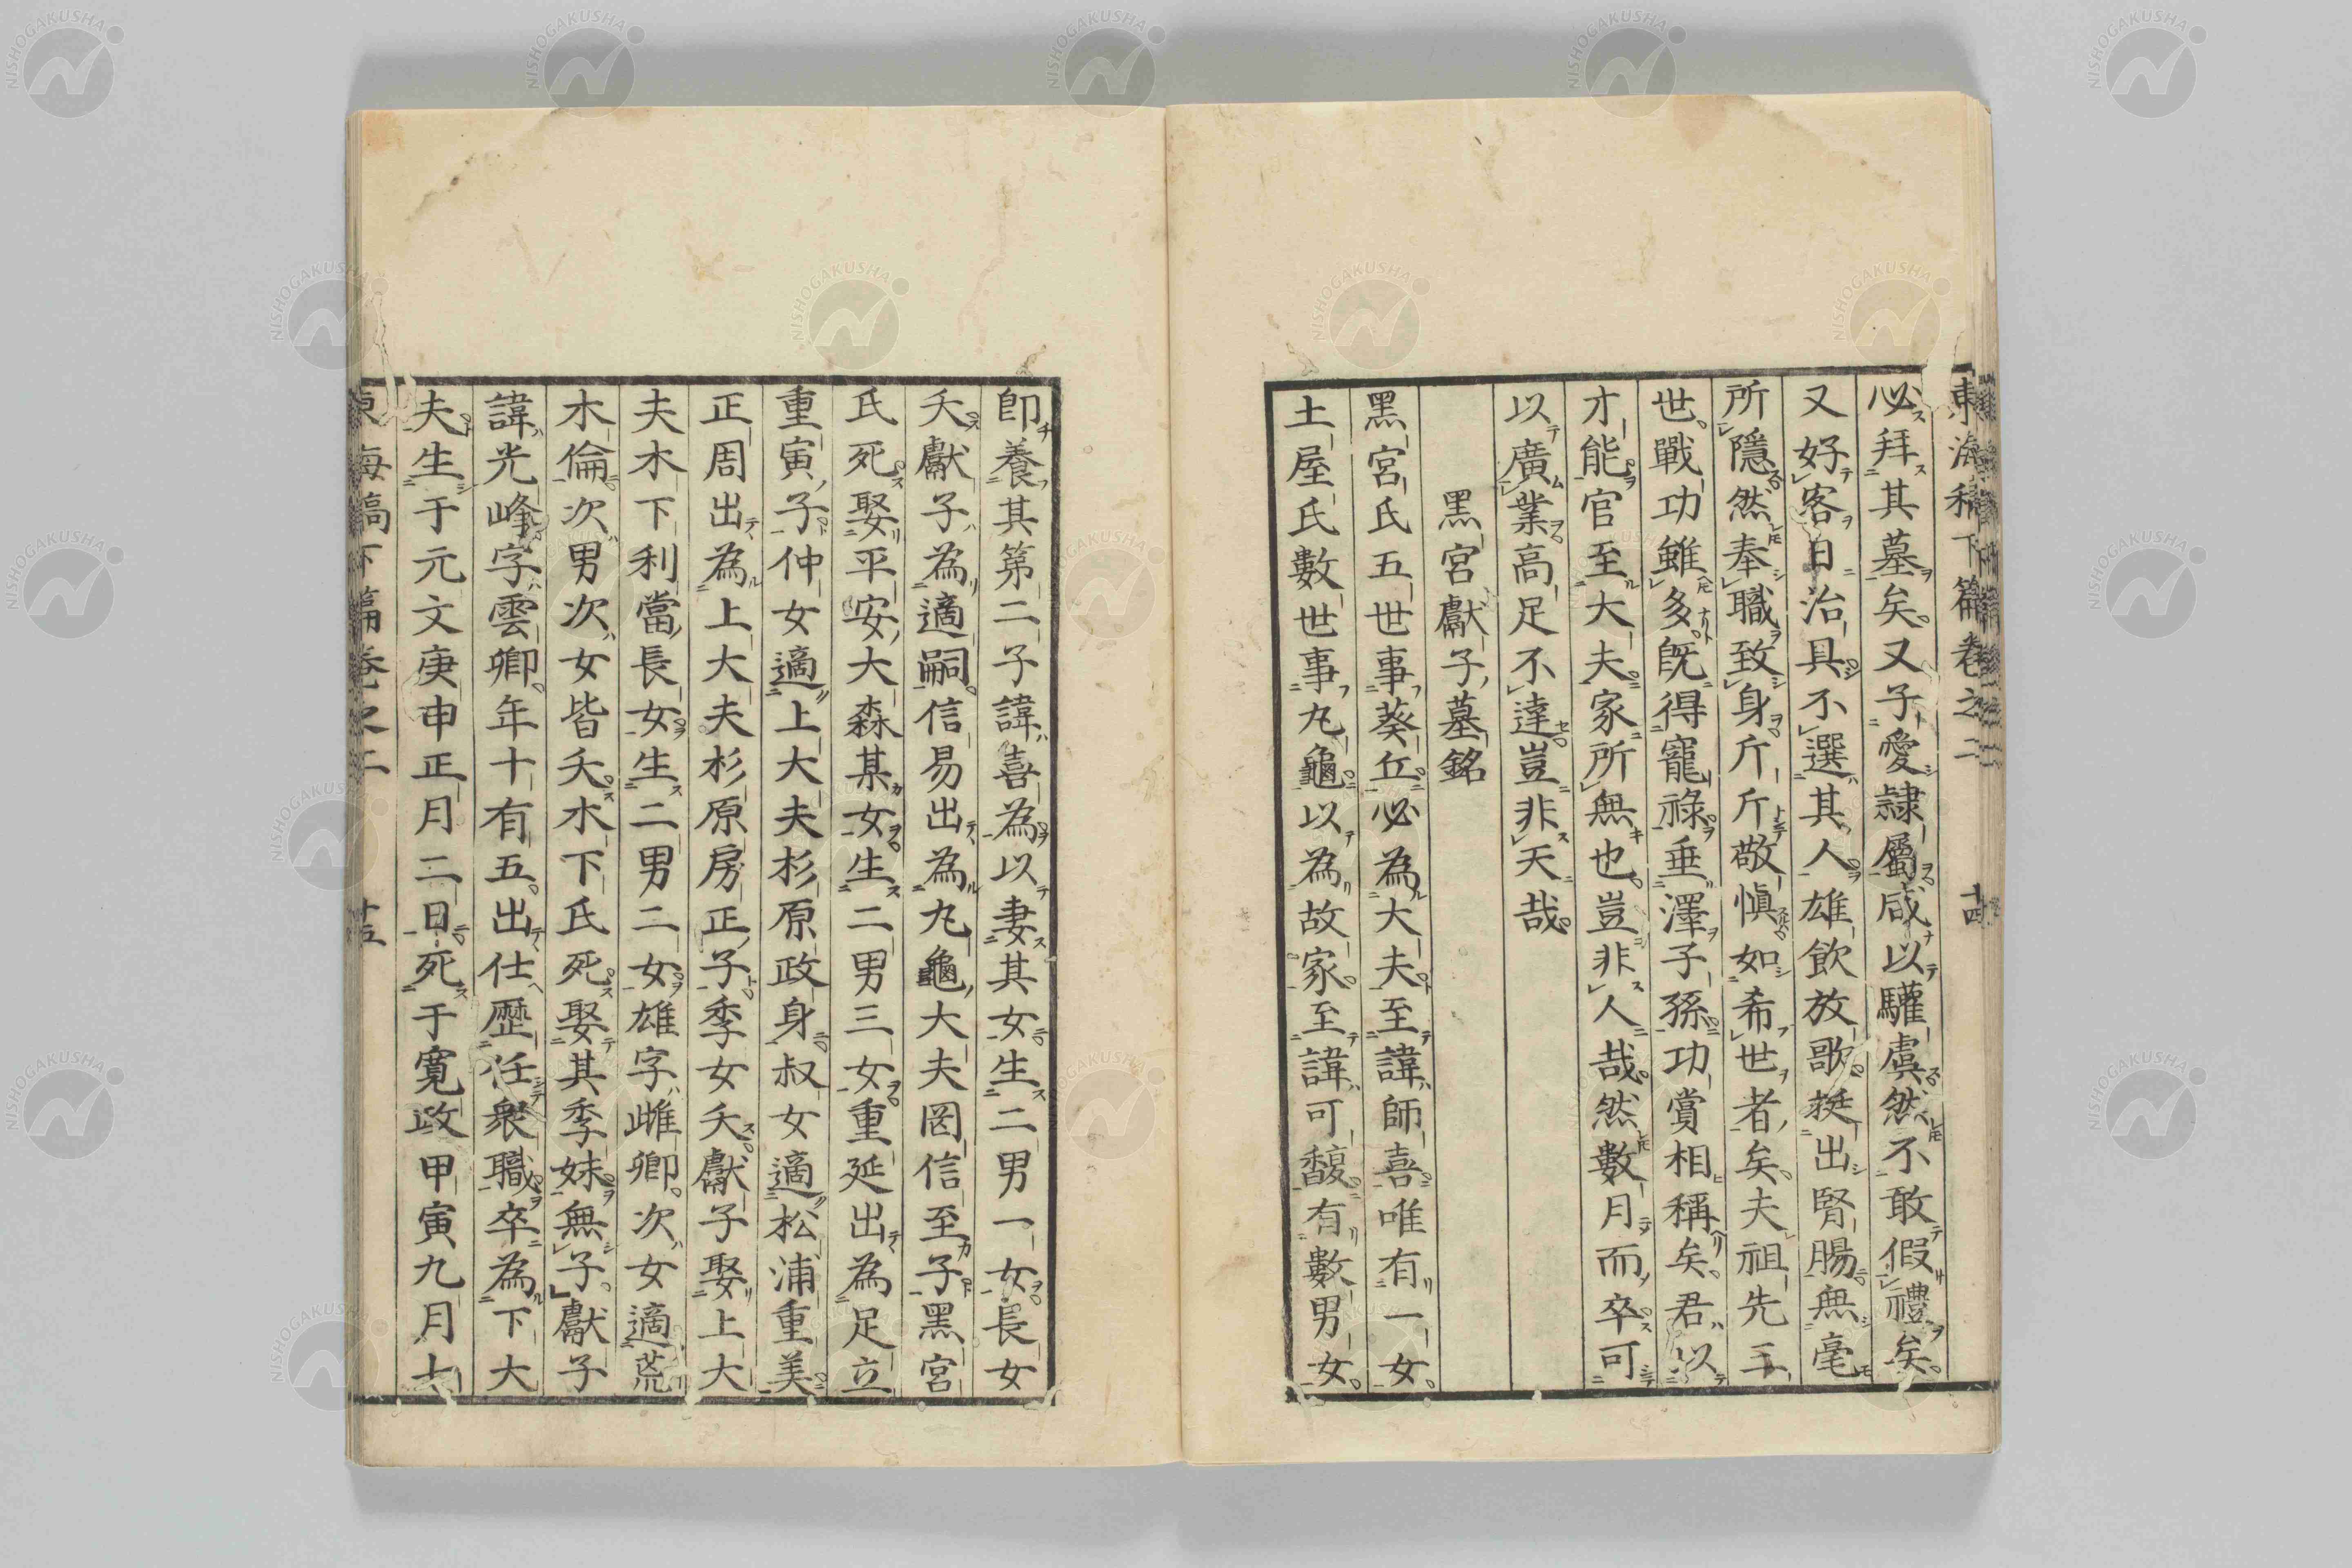 東海稿下篇卷之二 十四
必拜其墓矣又子愛隷屬咸以驩虞然不敢假禮矣
又好客日治具不選其人雄飲放歌挺出腎腸無毫
所隱然奉職致身斤斤敬愼如希世者矣夫祖先王
世戰功雖多旣得寵祿垂澤子孫功賞相稱矣君以
才能官至大夫家所無也豈非人哉然數月而卒可
以廣業高足不達豈非天哉
黑宮獻子墓銘
黑宮氏五世事葵丘必為大夫至諱師喜唯有一女
土屋氏數世事丸龜以為故家至諱可馥有數男女
卽養其第二子諱喜為以妻其女生二男一女長女
夭獻子為適嗣信易出為丸龜大夫岡信至子黑宮
氏死娶平安大森某女生二男三女重延出為足立
重寅子仲女適上大夫杉原政身叔女適松浦重美
正周出為上大夫杉原房正子季女夭獻子娶上大
夫木下利當長女生二男二女雄字雌卿次女適荒
木倫次男次女皆夭木下氏死娶其季妹無子獻子
諱光峰字雲卿年十有五出仕歷任衆職卒為下大
夫生于元文庚申正月二日死于寬政甲寅九月十
東海稿下篇卷之二 十五
NISHOGAKUSHA